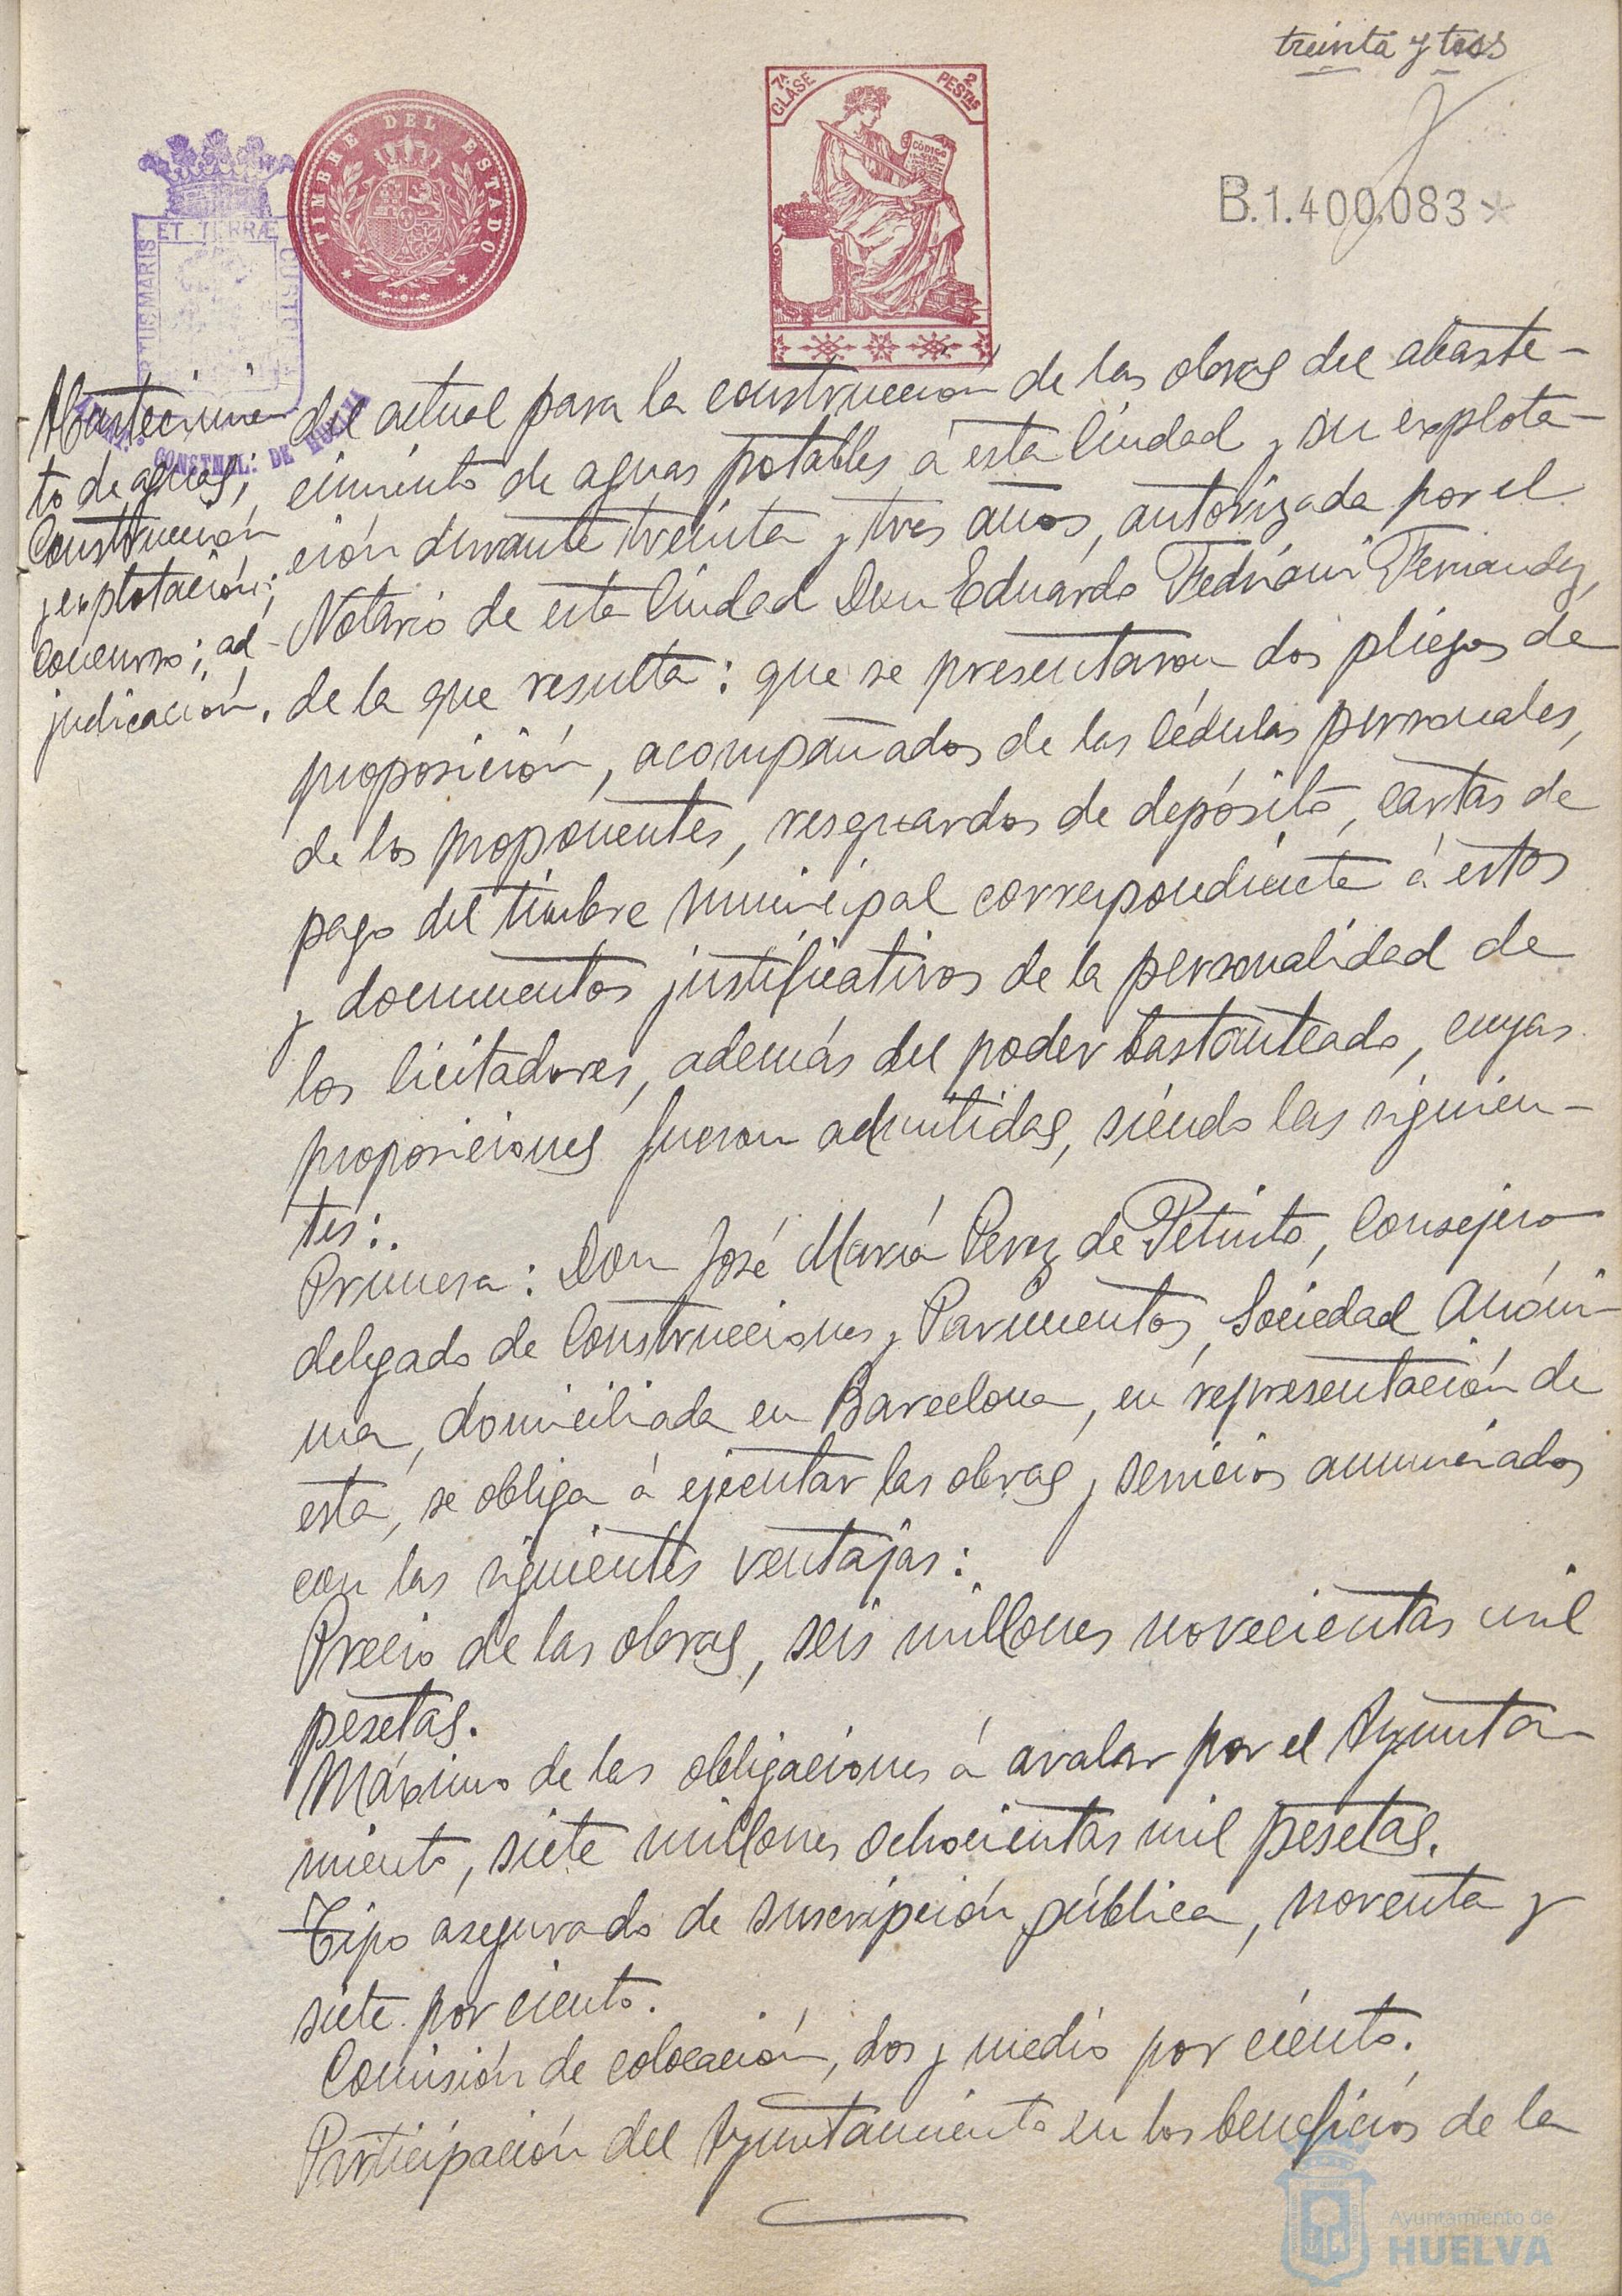 treinta y tres
7ª CLASE
2 PESTAS
CÓDIGO
TIMBRE DEL ESTADO
B.1.400.083*
ET TERRÆ
MARIS
CONSTNAL: DE HUELVA
Abastecimien
to de aguas;
Construcción
y explotación;
Concurso; ad-
judicación.
del actual para la construcción de las obras del abaste-
cimiento de aguas potables á esta Ciudad y su explota-
ción durante treinta y tres años, autorizada por el
Notario de esta Ciudad Don Eduardo Fedriani Fernandez,
de la que resulta: que se presentaron dos pliegos de
proposición, acompañados de las cédulas personales,
de los proponentes, resguardos de depósito, cartas de
pago del timbre municipal correspondiente á estos
y documentos justificativos de la personalidad de
los licitadores, además del poder bastanteado, cuyas
proposiciones fueron admitidas, siendo las siguien-
tes:.
Primera: Don José María Perez de Petinto, Consejero
delegado de Construcciones y Pavimentos, Sociedad Anóni-
ma, domiciliada en Barcelona, en representación de
esta, se obliga á ejecutar las obras y servicios anunciados
con las siguientes ventajas:
Precio de las obras, seis millones novecientas mil
pesetas.
Máximo de las obligaciones á avalar por el Ayunta-
miento, siete millones ochocientas mil pesetas.
Tipo asegurado de suscripción pública, noventa y
siete por ciento.
Comisión de colocación, dos y medio por ciento.
Participación del Ayuntamiento en los beneficios de la
Ayuntamiento de
HUELVA